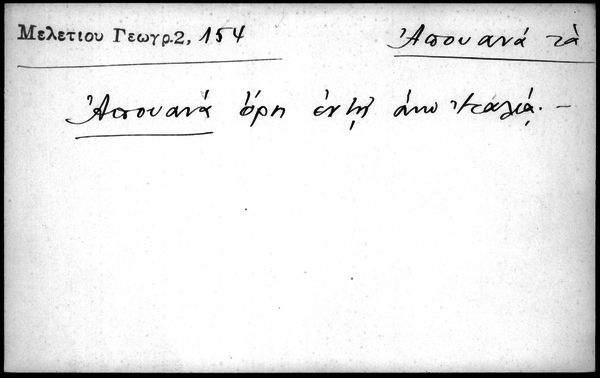 Μελετίου Γεωγρ.2, 154
Ἀπουανά τὰ
Ἀπουανά ὄρη ἐν τῇ ἄνω Ἰταλίᾳ. —